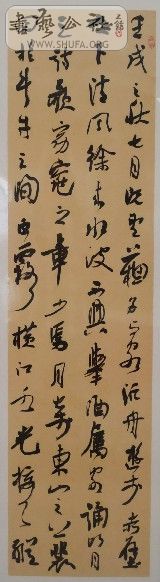 書藝公社
WWW.SHUFA.ORG
壬戌之秋七月既望蘇子与客泛舟遊於赤壁
之下清風徐来水波不興舉酒屬客誦明月
之詩歌窈窕之章少焉月出東山之上裴
回於斗牛之間白露橫江水光接天縱